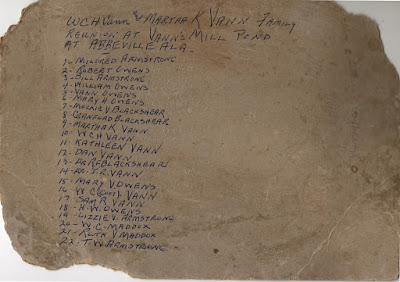 WCH Vann & MARTHA K VANN FAMILY
REUNION AT VANN'S MILL POND
AT ABBEVILLE ALA.
1- MILDRED ARMSTRONG
2- ROBERT OWENS
3- BILL ARMSTRONG
4- WILLIAM OWENS
5- VANN OWENS
6- MARY H OWENS
7- V BLACKSHEAR
8- CRANFORD BLACKSHEAR
9- MARTHA K VANN
10- WCH VANN
11- KATHLEEN VANN
12- DAN VANN
13- DR RF BLACKSHEAR
14- DR. J.R. VANN
15- MARY V OWENS
16 W C VANN
17 SAM R VANN
18- H.W. OWENS
19- LIZZIE V. ARMSTRONG
20- W.C. MADDOX
21- RUTH V MADDOX
22- T W ARMSTRONG